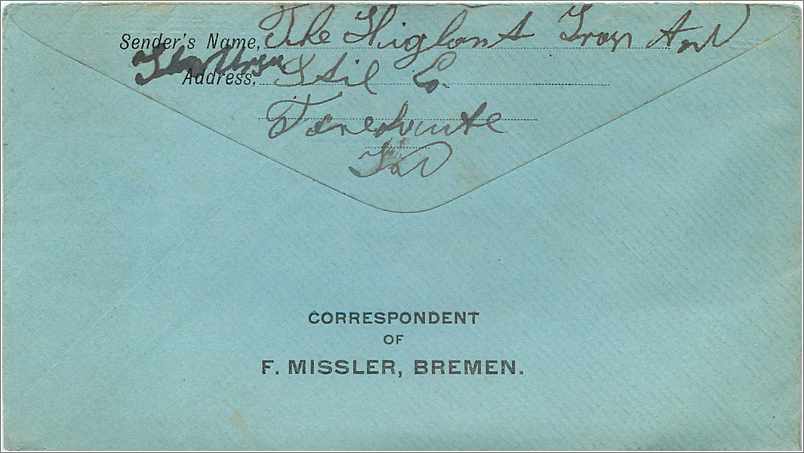 Sender's Name, The Higlant Iron And
Address, Stil Co.
Terehaute
Ind
CORRESPONDENT
OF
F. MISSLER, BREMEN.